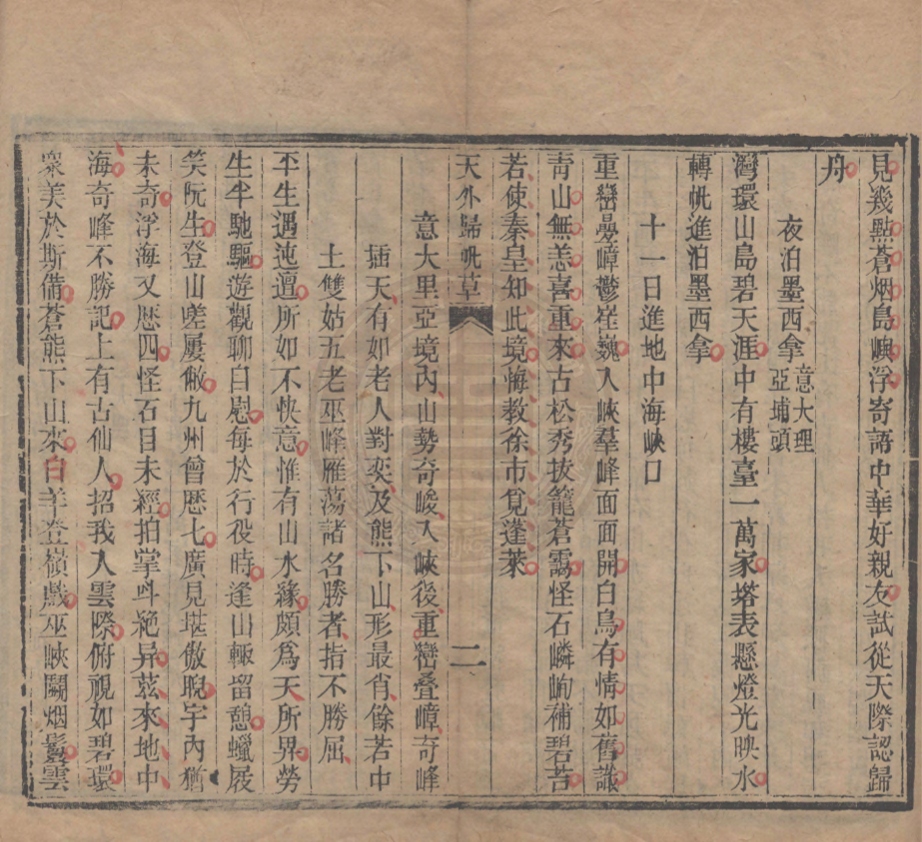 見幾點蒼烟島嶼浮寄語中華好親友試從天際認歸
舟
夜泊墨西拿意大理亞埔頭
灣環山島碧天涯中有樓臺一萬家塔表懸燈光映水
轉帆進泊墨西拿
十一日進地中海峽口
重巒疊嶂鬱崔巍入峽羣峰面面開白鳥有情如舊識
青山無恙喜重來古松秀抜籠蒼靄怪石嶙峋補碧苔
若使秦皇知此境悔教徐市覓蓬萊
天外歸帆草 二
意大里亞境內山勢奇峻入峽後重巒叠嶂奇峰
插天有如老人對奕及熊下山形最肖餘若中
土雙姑五老巫峰雁蕩諸名勝者指不勝屈
平生遇迍邅所如不快意惟有山水緣頗爲天所畀勞
生半馳驅遊觀聊自慰每於行役時逢山輙留憩蠟屐
笑阮生登山嗟屢敝九州曾歷七廣見堪傲睨宇內猶
未奇浮海又歴四怪石目未經拍掌呌絶异茲來地中
海奇峰不勝記上有古仙人招我入雲際俯視如碧環
衆美於斯備蒼熊下山來白羊登嶺戲巫峽鬭烟鬟雲